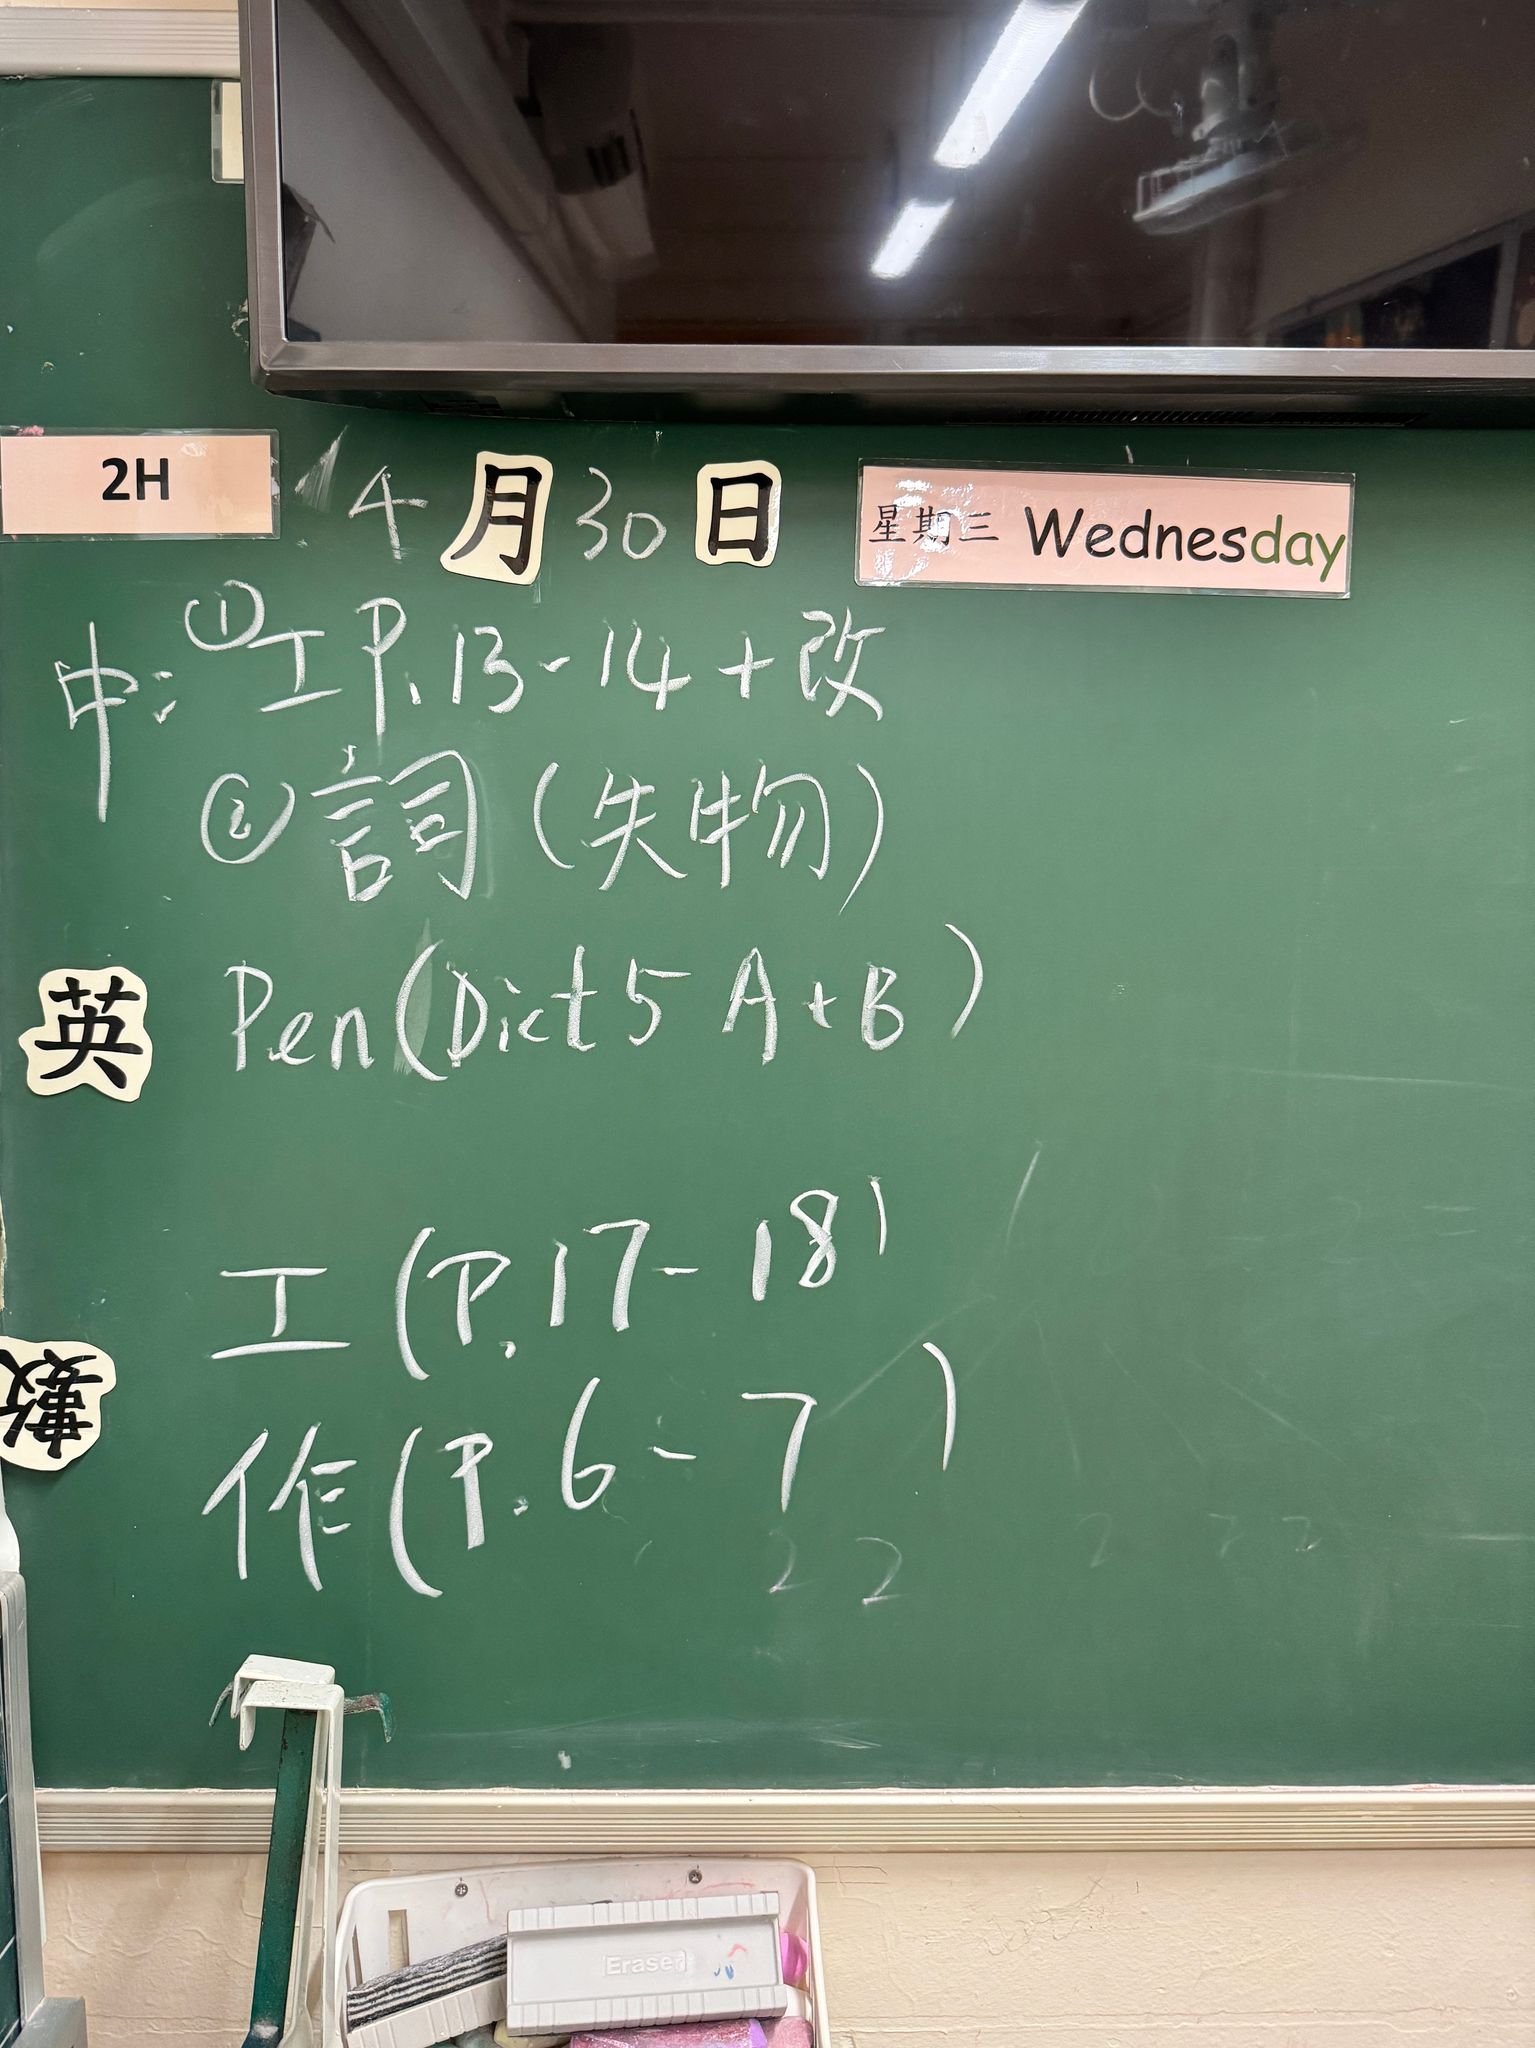 2H 4月30日 星期三 Wednesday
中: ①工 P.13-14+改
②詞(失物)
英 Pen(Dict 5 A+B)
工(P.17-18)
數 作(P.6-7)
2 2 2 2 2
Eraser